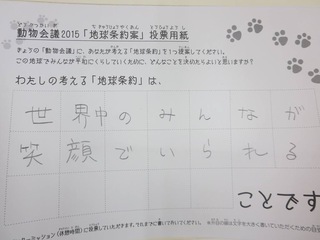 動物会議2015「地球条約案」投票用紙
きょうの「動物会議」に、あなたが考える「地球条約」を1つ提案してください。
この地球でみんなが平和にくらしていくために、どんなことを決めたらよいと思いますか?
わたしの考える「地球条約」は、
世界中のみんなが
笑顔でいられる
ことです